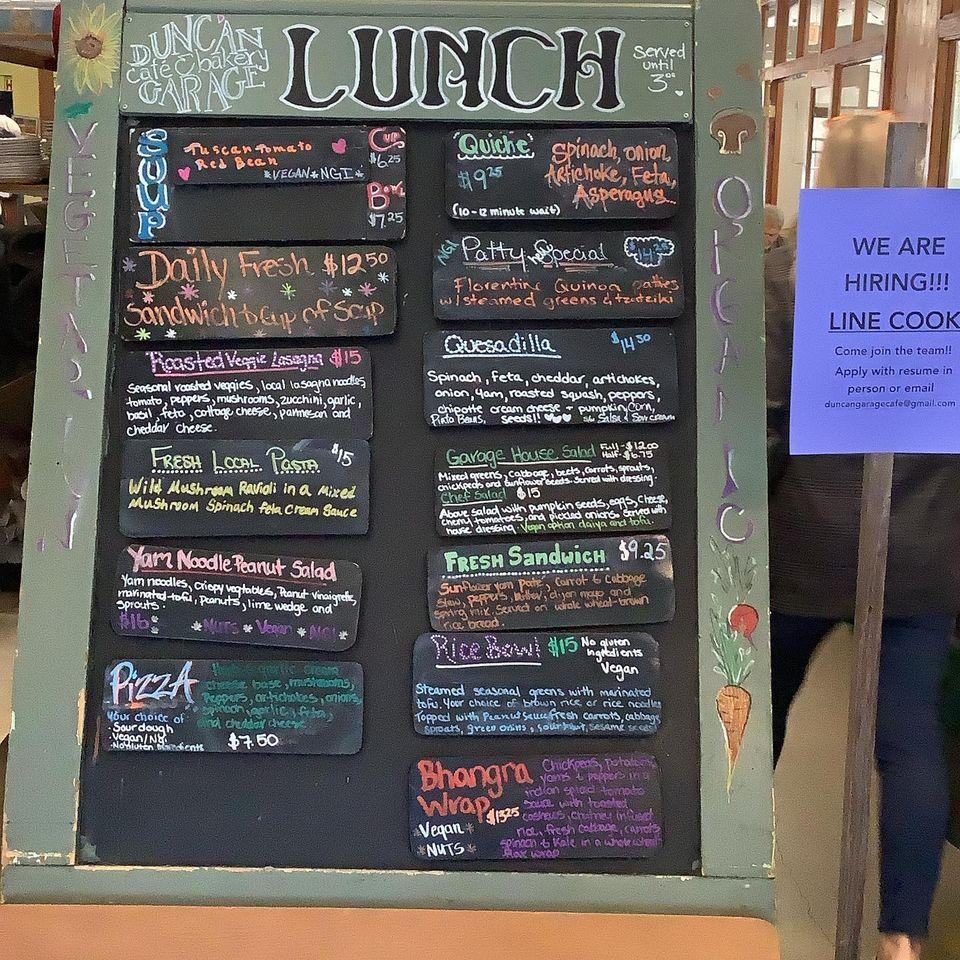 DUNCAN
café & bakery
GARAGE
LUNCH
Served
until
3⁰⁰
VEGETARIAN
ORGANIC
SOUP
Tuscan Tomato
Red Bean
*VEGAN*NGI*
Cup
$6.25
Bowl
$7.25
Daily Fresh $12⁵⁰
Sandwich & Cup of Soup
Roasted Veggie Lasagna $15
Seasonal roasted veggies, local lasagna noodles,
tomato, peppers, mushrooms, zucchini, garlic,
basil, feta, cottage cheese, parmesan and
cheddar cheese.
FRESH LOCAL PASTA $15
Wild Mushroom Ravioli in a Mixed
Mushroom Spinach feta Cream Sauce
Yam Noodle Peanut Salad
Yam noodles, crispy vegetables, Peanut vinaigrette,
marinated tofu, peanuts, lime wedge and
sprouts.
$16 *NUTS * Vegan * NGI *
PIZZA
garlic cream
cheese base, mushrooms,
Peppers, artichokes, onions,
spinach, garlic, feta,
and cheddar cheese
Your choice of
-Sourdough
-Vegan/NGI
-No gluten ingredients
$7.50
"Quiche"
$9²⁵
Spinach, onion,
Artichoke, Feta,
Asparagus...
(10-12 minute wait)
NGI Patty Special
Florentine Quinoa patties
w/ steamed greens & tzatziki
Quesadilla $14⁵⁰
Spinach, feta, cheddar, artichokes,
onion, yam, roasted squash, peppers,
chipotle cream cheese + pumpkin, corn,
Pinto Beans, seeds!! Salsa & Sour cream
Garage House Salad Full-$12.00
Half-$6.75
Mixed greens, cabbage, beets, carrots, sprouts,
chickpeas and sunflower seeds. Served with dressing.
Chef Salad $15
Above salad with pumpkin seeds, eggs, cheese,
cherry tomatoes, and pickled onions. Served with
house dressing. Vegan option daiya and tofu.
FRESH SANDWICH $9.25
Sunflower yam pate, carrot & cabbage
slaw, peppers, dijon mayo and
spring mix. Served on whole wheat-brown
rice bread.
Rice Bowl $15 No gluten
ingredients
Vegan
Steamed seasonal greens with marinated
tofu. Your choice of brown rice or rice noodles
Topped with Peanut Sauce, fresh carrots, cabbage,
sprouts, green onions, sesame seeds
Bhangra
Wrap $13.25
*Vegan*
*NUTS*
Chickpeas, potatoes,
yams & peppers in a
indian spiced tomato
sauce with toasted
cashews, chutney infused
rice, fresh cabbage, carrots
spinach & Kale in a whole wheat
flax wrap
WE ARE
HIRING!!!
LINE COOK
Come join the team!!
Apply with resume in
person or email
duncangaragecafe@gmail.com